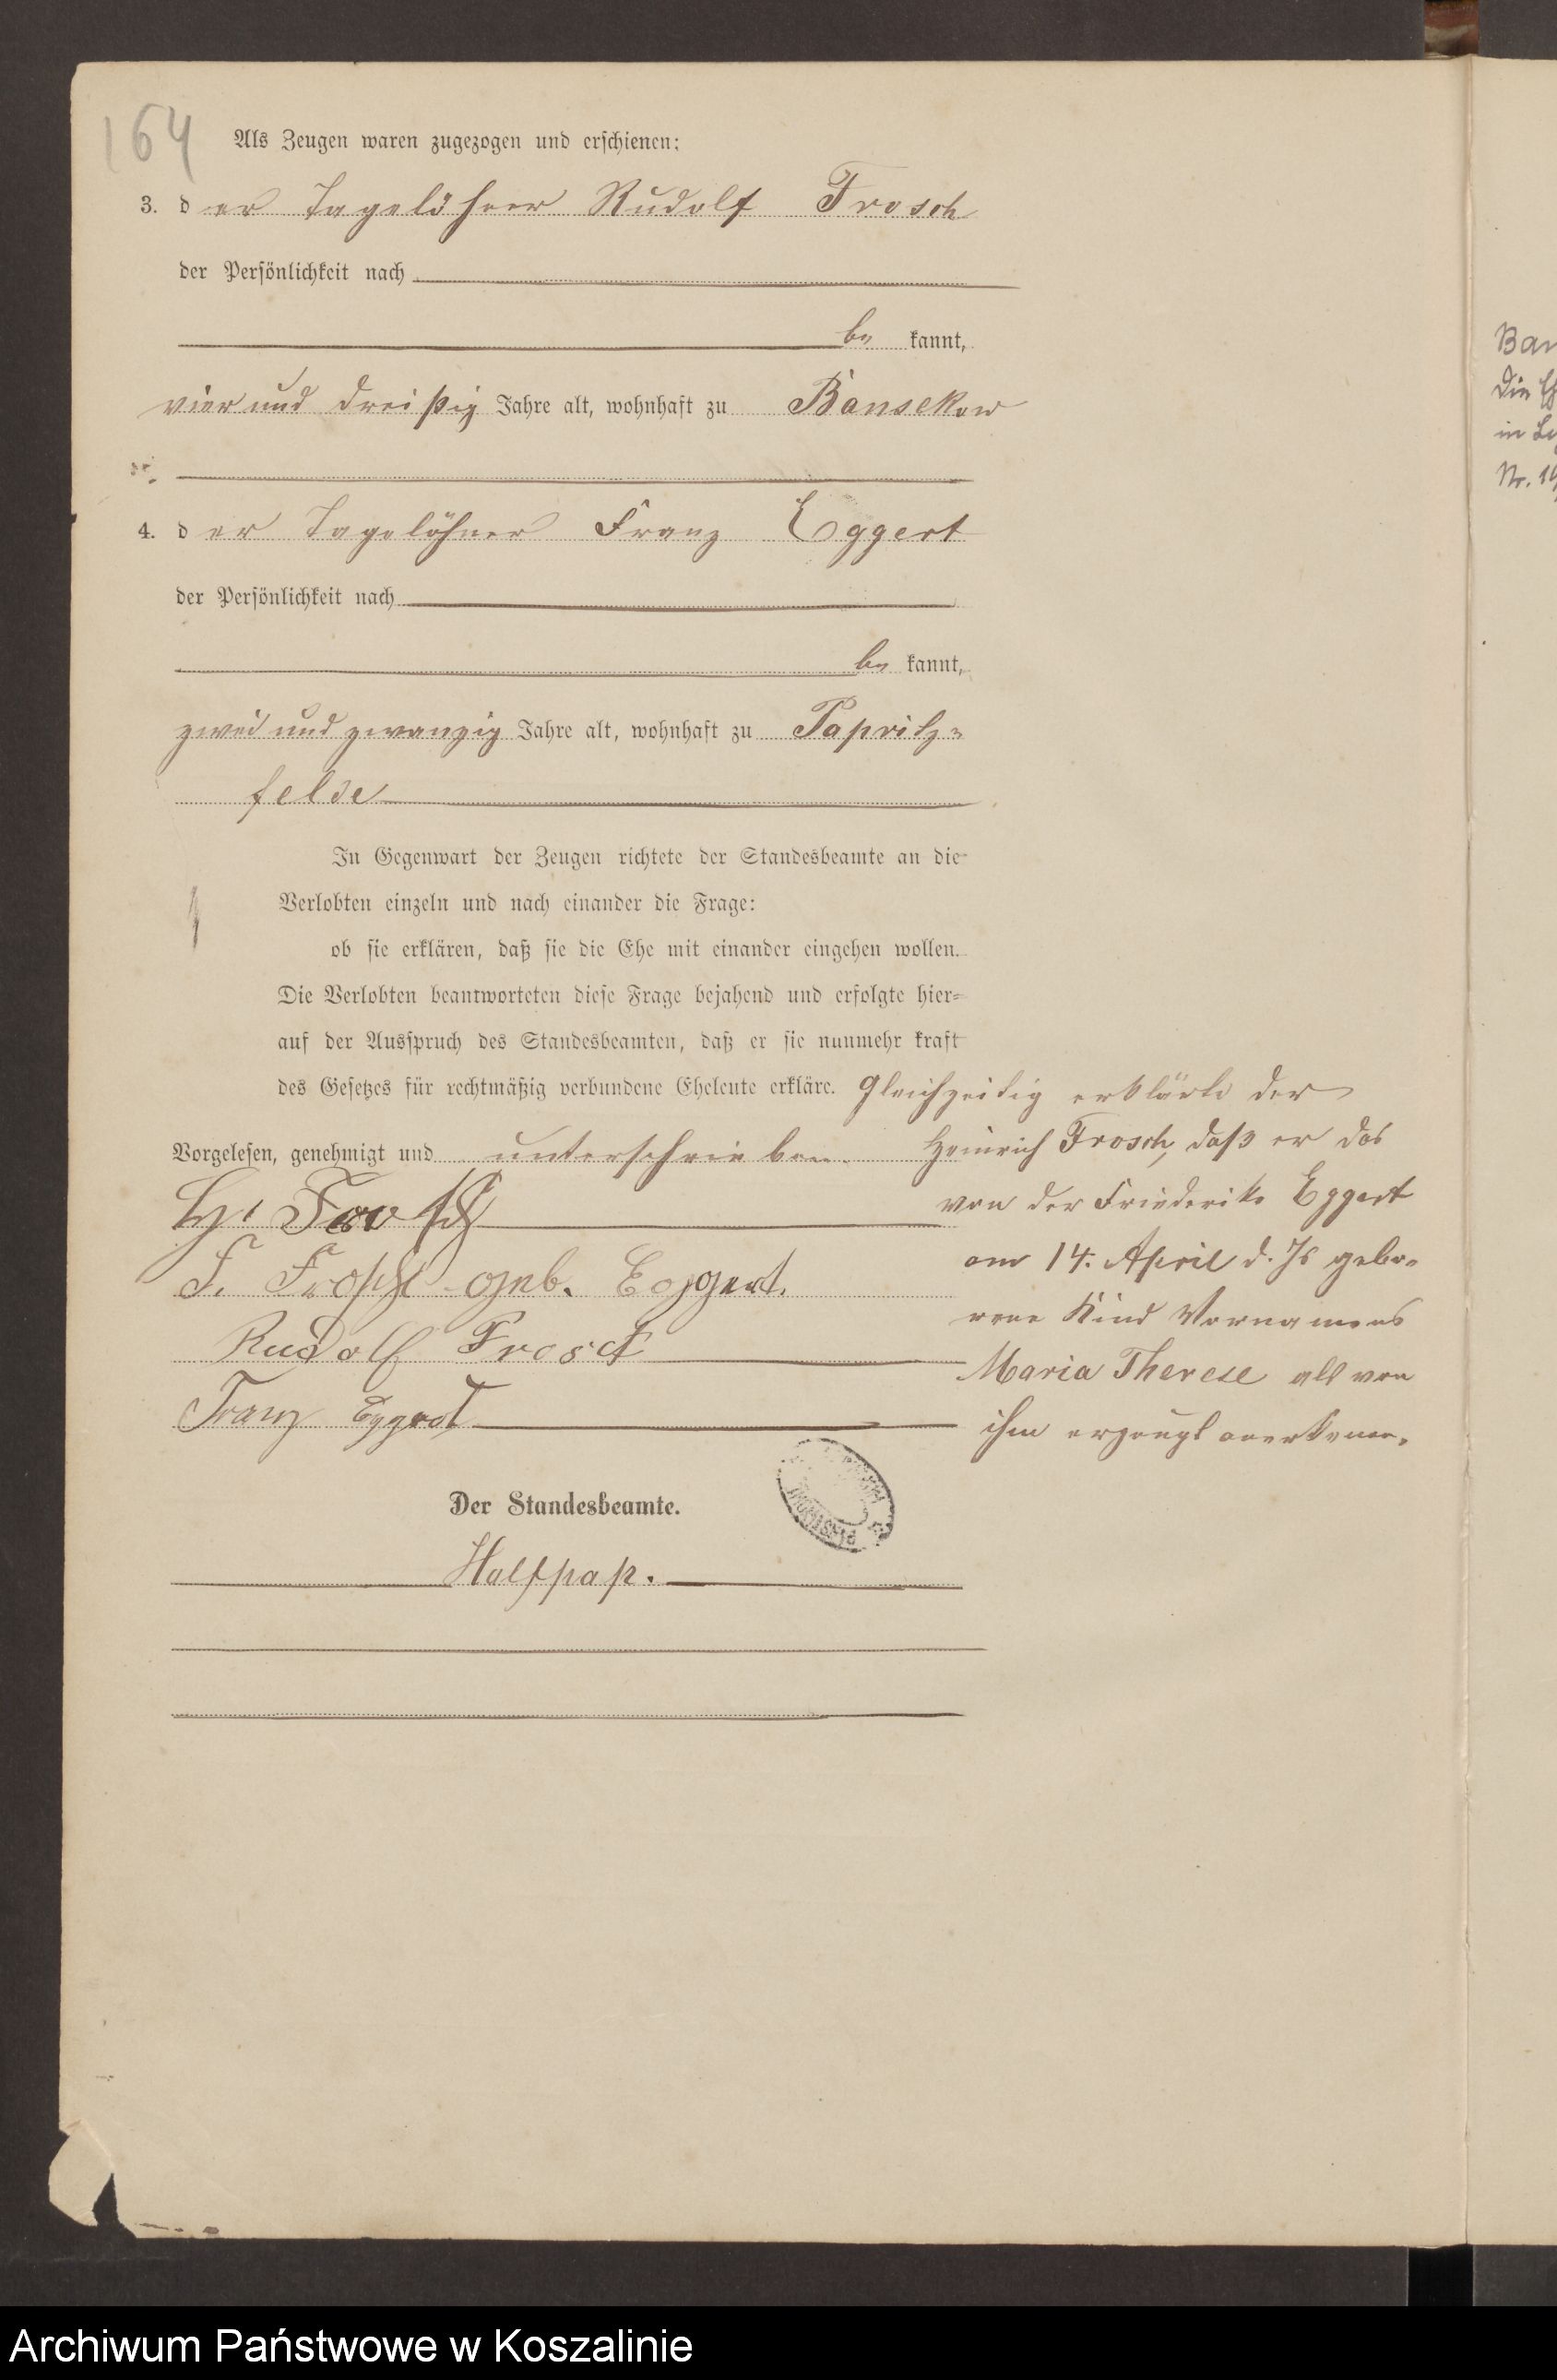 164
Als Zeugen waren zugezogen und erschienen:
3. der Tagelöhner Rudolf Frosch
der Persönlichkeit nach
be kannt,
vier und dreißig Jahre alt, wohnhaft zu Bansekow
4. der Tagelöhner Franz Eggert
der Persönlichkeit nach
be kannt,
zwei und zwanzig Jahre alt, wohnhaft zu Papritz=
felde
In Gegenwart der Zeugen richtete der Standesbeamte an die
Verlobten einzeln und nach einander die Frage:
ob sie erklären, daß sie die Ehe mit einander eingehen wollen.
Die Verlobten beantworteten diese Frage bejahend und erfolgte hier=
auf der Ausspruch des Standesbeamten, daß er sie nunmehr kraft
des Gesetzes für rechtmäßig verbundene Eheleute erkläre.
Vorgelesen, genehmigt und unterschrieben.
H. Frosch
F. Frosch geb. Eggert.
Rudolf Frosch
Franz Eggert
Der Standesbeamte.
Halfpap.
Gleichzeitig erklärte der
Heinrich Frosch, daß er das
von der Friederike Eggert
am 14. April d. Js gebo=
rene Kind Vornamens
Maria Therese als von
ihm erzeugt anerkenne.
Ban
Die Eh
in
Nr. 19
Archiwum Państwowe w Koszalinie